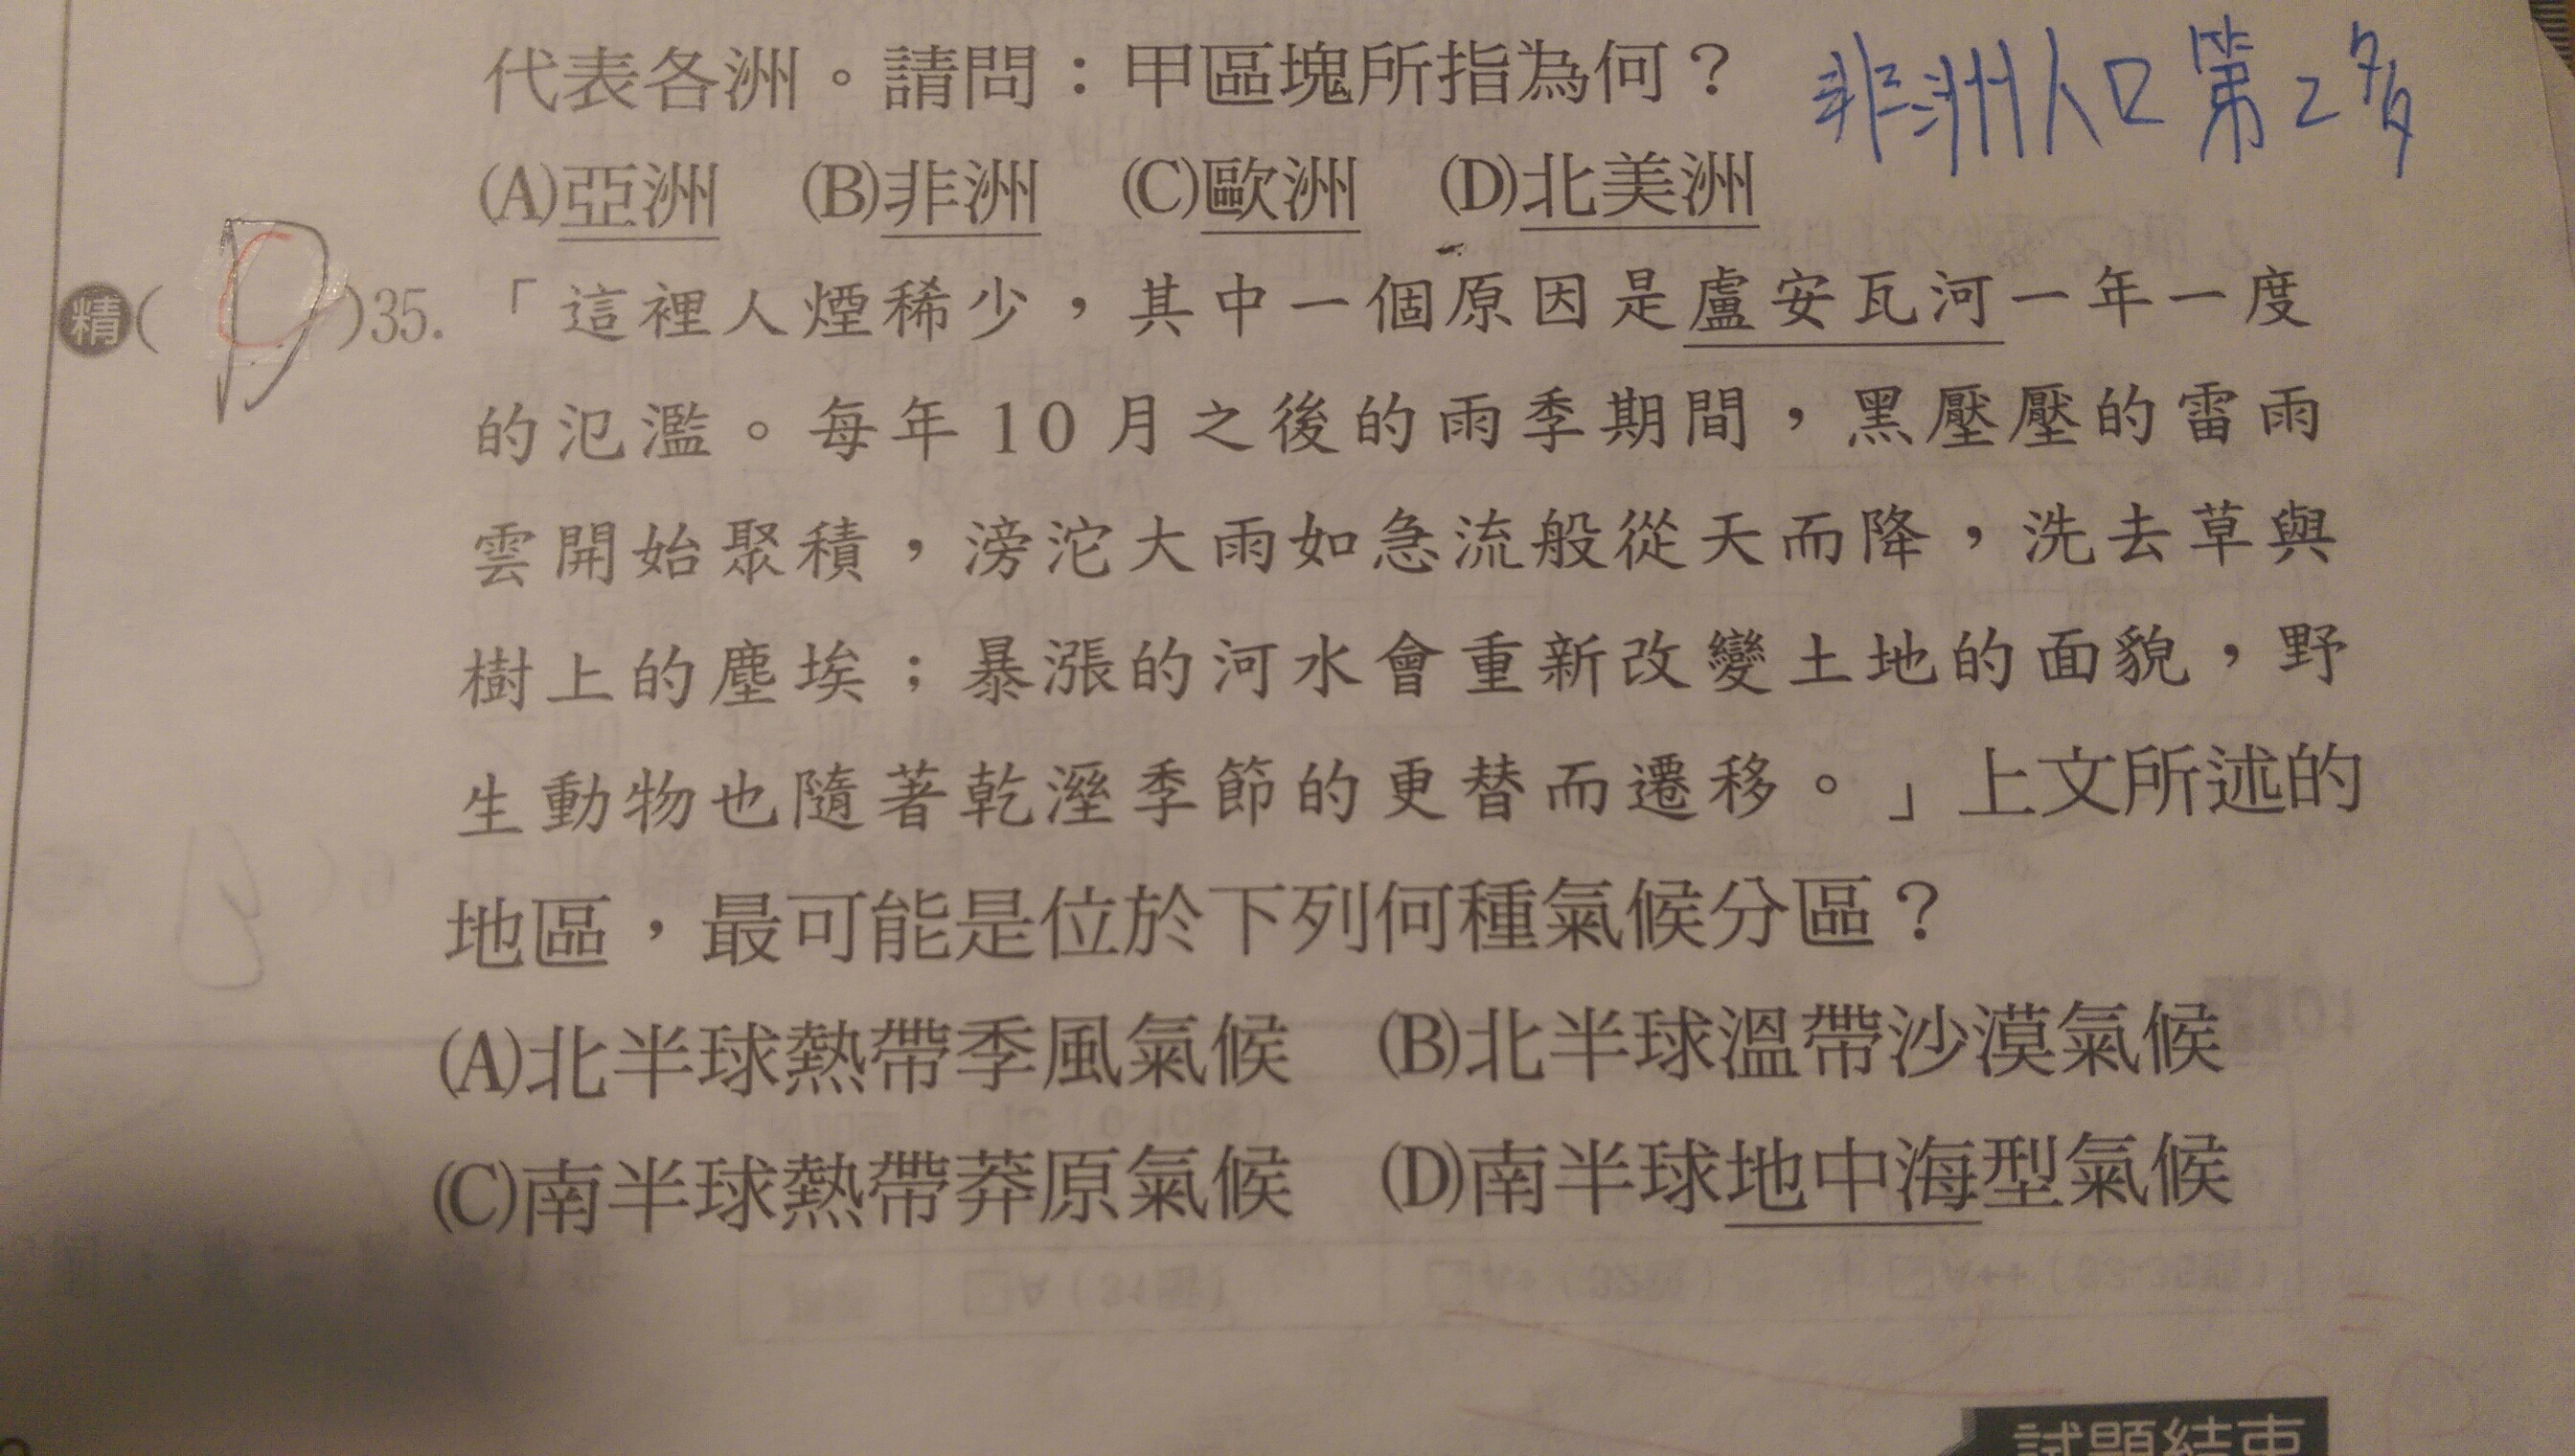 代表各洲。請問：甲區塊所指為何？ 非洲人口第2多
(A)亞洲 (B)非洲 (C)歐洲 (D)北美洲
精( D )35.「這裡人煙稀少，其中一個原因是盧安瓦河一年一度
的氾濫。每年10月之後的雨季期間，黑壓壓的雷雨
雲開始聚積，滂沱大雨如急流般從天而降，洗去草與
樹上的塵埃；暴漲的河水會重新改變土地的面貌，野
生動物也隨著乾溼季節的更替而遷移。」上文所述的
地區，最可能是位於下列何種氣候分區？
(A)北半球熱帶季風氣候 (B)北半球溫帶沙漠氣候
(C)南半球熱帶莽原氣候 (D)南半球地中海型氣候
試題結束